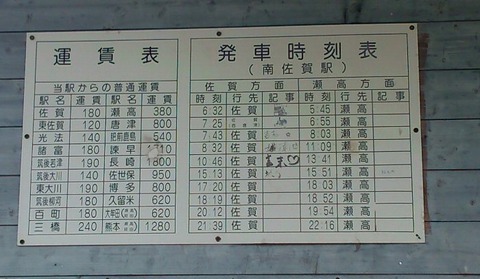 運賃表
当駅からの普通運賃
駅名 運賃 駅名 運賃
佐賀 180 瀬高 380
東佐賀 120 唐津 800
光法 140 肥前鹿島 540
諸富 180 諫早
筑後若津 190 長崎
筑後大川 140 佐世保 950
東大川 190 博多 800
筑後柳河 180 久留米 620
百町 180 大牟田 620
三橋 240 熊本 1280
発車時刻表
(南佐賀駅)
佐賀方面 瀬高方面
時刻 行先 記事 時刻 行先 記事
6 32 佐賀 5 45 瀬高
7 25 佐賀 6 55 瀬高
7 43 佐賀 8 03 瀬高
8 32 佐賀 11 09 瀬高
10 46 佐賀 13 41 瀬高
15 13 佐賀 15 51 瀬高
17 20 佐賀 18 03 瀬高
18 19 佐賀 18 52 瀬高
20 12 佐賀 19 54 瀬高
21 39 佐賀 22 16 瀬高